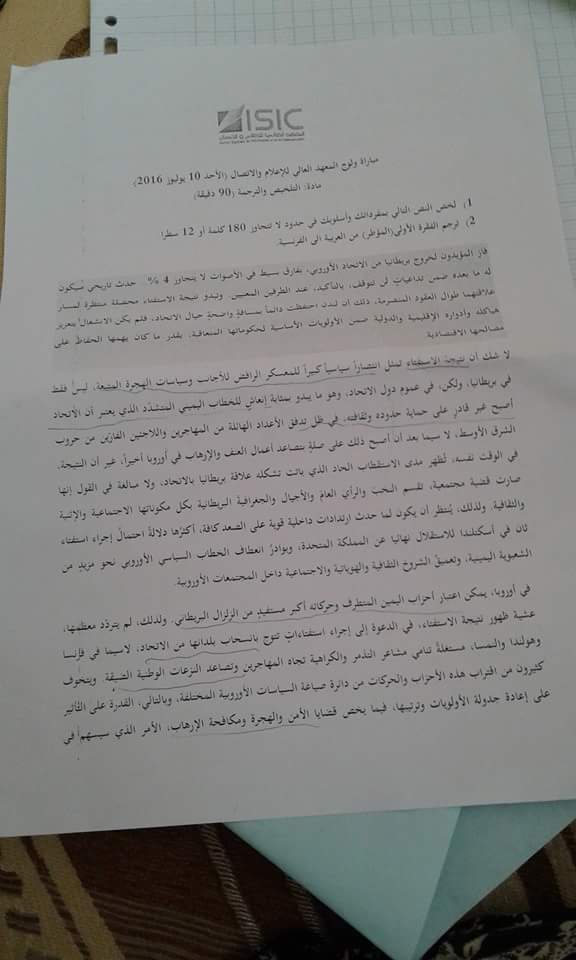 ISIC
مباراة ولوج المعهد العالي للإعلام والاتصال (الأحد 10 يوليوز 2016)
مادة: التلخيص والترجمة (90 دقيقة)
1) لخص النص التالي بمفرداتك وأسلوبك في حدود لا تتجاوز 180 كلمة أو 12 سطرا
2) ترجم الفقرة الأولى (المؤطر) من العربية الى الفرنسية.
فاز المؤيدون لخروج بريطانيا من الاتحاد الأوروبي، بفارق بسيط في الأصوات لا يتجاوز 4 %. حدث تاريخي سيكون
له ما بعده ضمن تداعيات لن تتوقف، بالتأكيد، عند الطرفين المعنيين. وتبدو نتيجة الاستفتاء محصلة منتظرة لمسار
علاقتهما طوال العقود المنصرمة، ذلك أن لندن احتفظت دائما بمسافة واضحة حيال الاتحاد، فلم يكن الانشغال بتعزيز
هياكله وأدواره الإقليمية والدولية ضمن الأولويات الأساسية لحكوماتها المتعاقبة، بقدر ما كان يهمها الحفاظ على
مصالحها الاقتصادية.
لا شك أن نتيجة الاستفتاء تمثل انتصاراً سياسياً كبيراً للمعسكر الرافض للأجانب وسياسات الهجرة المتبعة، ليس فقط
في بريطانيا، ولكن، في عموم دول الاتحاد، وهو ما يبدو بمثابة إنعاش للخطاب اليميني المتشدّد الذي يعتبر أن الاتحاد
أصبح غير قادر على حماية حدوده وثقافته، في ظل تدفق الأعداد الهائلة من المهاجرين واللاجئين الفارين من حروب
الشرق الأوسط، لا سيما بعد أن أصبح ذلك على صلةٍ بتصاعد أعمال العنف والإرهاب في أوروبا أخيراً، غير أن النتيجة،
في الوقت نفسه، تُظهر مدى الاستقطاب الحاد الذي باتت تشكله علاقة بريطانيا بالاتحاد، ولا مبالغة في القول إنها
صارت قضية مجتمعية، تقسم النخب والرأي العام والأجيال والجغرافية البريطانية بكل مكوناتها الاجتماعية والإثنية
والثقافية. ولذلك، يُنتظر أن يكون لما حدث ارتدادات داخلية قوية على الصعد كافة، أكثرُها دلالةً احتمالُ إجراء استفتاء
ثان في أسكتلندا للاستقلال نهائيا عن المملكة المتحدة، وبوادرُ انعطاف الخطاب السياسي الأوروبي نحو مزيدٍ من
الشعبوية اليمينية، وتعميقُ الشروخ الثقافية والهوياتية والاجتماعية داخل المجتمعات الأوروبية.
في أوروبا، يمكن اعتبار أحزاب اليمين المتطرف وحركاته أكبر مستفيدٍ من الزلزال البريطاني. ولذلك، لم يتردّد معظمها،
عشية ظهور نتيجة الاستفتاء، في الدعوة إلى إجراء استفتاءاتٍ تتوج بانسحاب بلدانها من الاتحاد، لاسيما في فرنسا
وهولندا والنمسا، مستغلةً تنامي مشاعر التذمر والكراهية تجاه المهاجرين وتصاعد النزعات الوطنية الضيقة. ويتخوف
كثيرون من اقتراب هذه الأحزاب والحركات من دائرة صياغة السياسات الأوروبية المختلفة، وبالتالي، القدرة على التأثير
على إعادة جدولة الأولويات وترتيبها، فيما يخص قضايا الأمن والهجرة ومكافحة الإرهاب، الأمر الذي سيسهم في